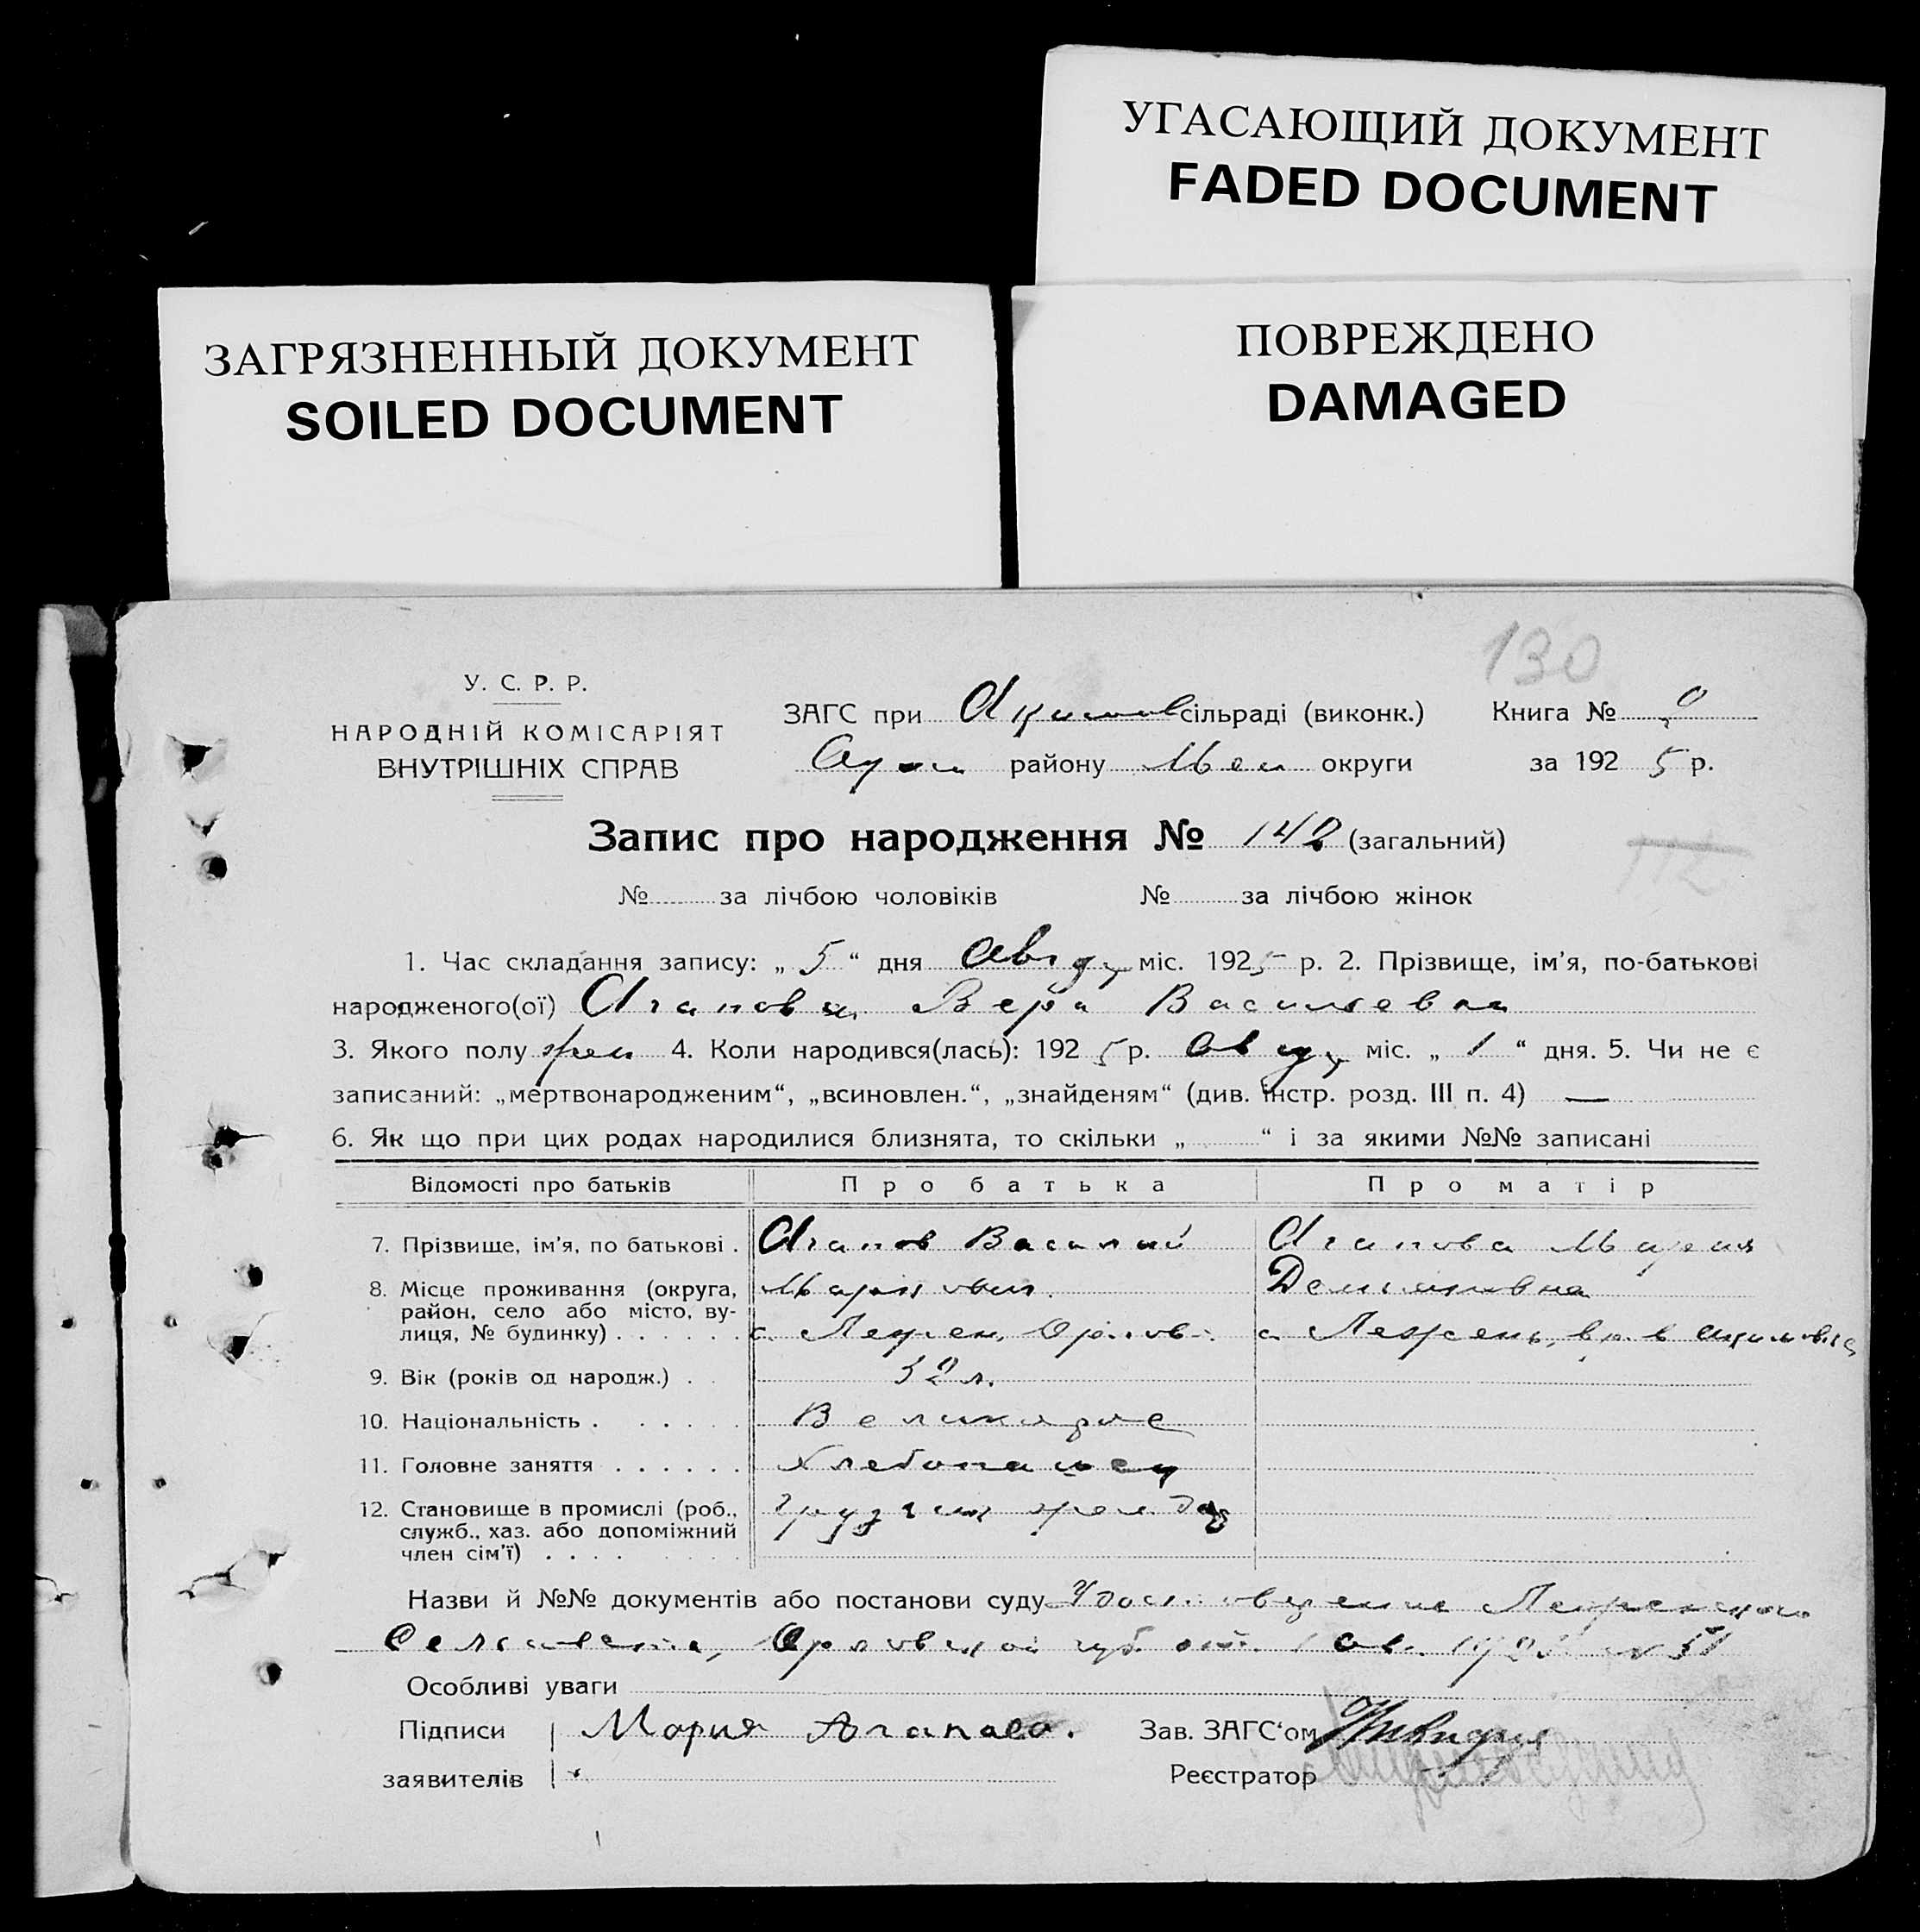 УГАСАЮЩИЙ ДОКУМЕНТ
FADED DOCUMENT
ЗАГРЯЗНЕННЫЙ ДОКУМЕНТ
SOILED DOCUMENT
ПОВРЕЖДЕНО
DAMAGED
130
У. С. Р. Р.
НАРОДНІЙ КОМІСАРІЯТ
ВНУТРІШНІХ СПРАВ
ЗАГС при Акимов сільраді (виконк.) Книга №
району Мел округи за 1925 р.
Запис про народження № 142 (загальний)
112
№ за лічбою чоловіків № за лічбою жінок
1. Час складання запису: „ 5 “ дня Август міс. 1925 р. 2. Прізвище, ім’я, по-батькові
народженого(ої) Агапова Вера Васильевна
3. Якого полу жен 4. Коли народився(лась): 1925 р. Август міс. „ 1 “ дня. 5. Чи не є
записаний: „мертвонародженим“, „всиновлен.“, „знайденям“ (див. інстр. розд. III п. 4) —
6. Як що при цих родах народилися близнята, то скільки „ “ і за якими №№ записані
Відомості про батьків Про батька Про матір
7. Прізвище, ім’я, по батькові . Агапов Василий Агапова Мария
8. Місце проживання (округа, Маркович. Демьяновна
район, село або місто, ву-
лиця, № будинку) . . . . . . с. Лежен, Орлов. с Лежень, вр. в Акимовка
9. Вік (років од народж.) . . 32 л.
10. Національність . . . . . Великорос
11. Головне заняття . . . . . . Хлебопашец
12. Становище в промислі (роб., грузчик жел дор
служб., хаз. або допоміжний
член сім’ї) . . . .
Назви й №№ документів або постанови суду Удостоверение Леженского
Сельсовета, Орловской губ. от 1 ав. 192 № 51
Особливі уваги
Підписи Мария Агапова.
Зав. ЗАГС‘ом
заявителів
Реєстратор